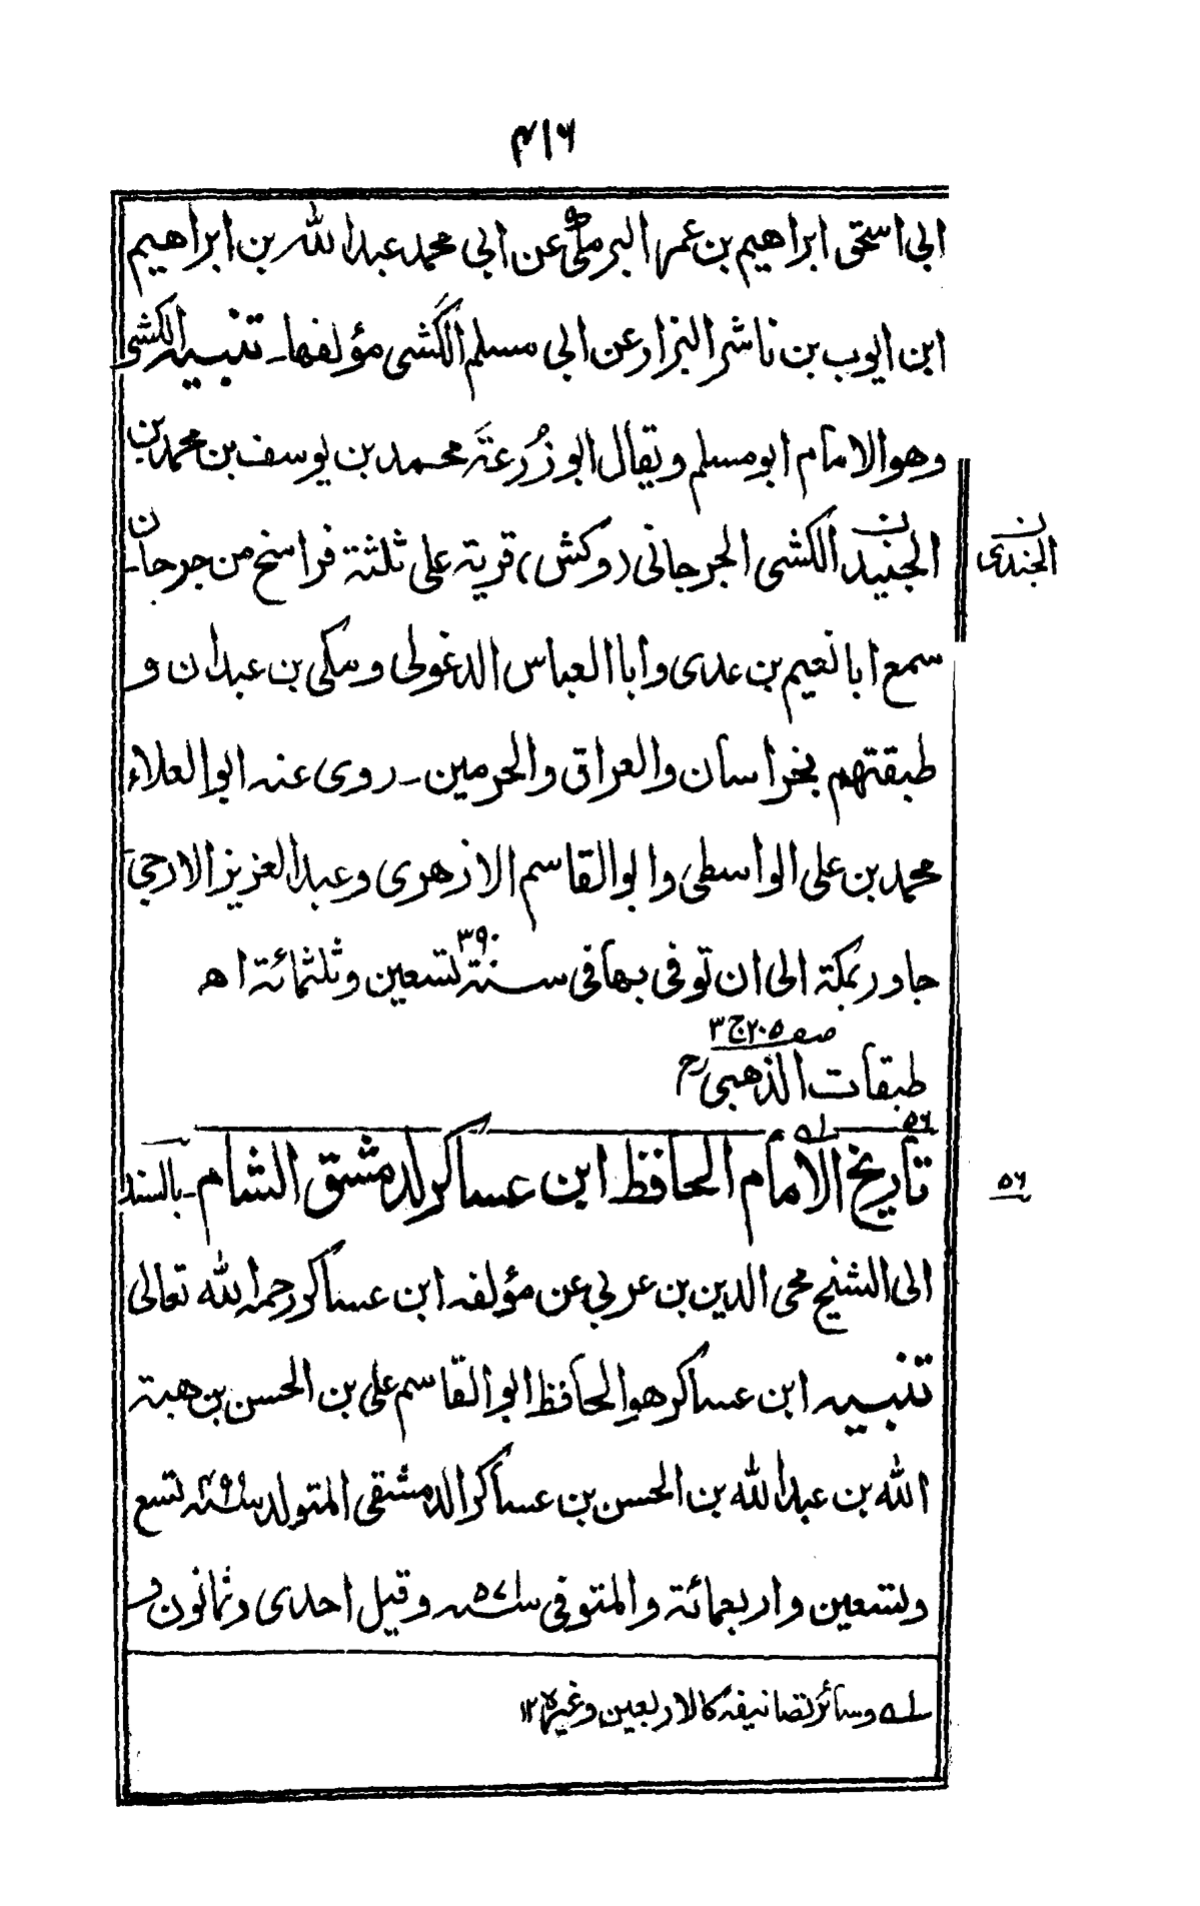 ٤١٦
ابی اسحٰق ابراهیم بن عمر البرمکی عن ابی محمد عبد الله بن ابراهیم
ابن ایوب بن ناشر البزار عن ابی مسلم الکشی مؤلفها۔ تنبیه الکشی
وهو الامام ابو مسلم ویقال ابو زُرعَة محمد بن یوسف بن محمد بن
الجنید الکشی الجرجانی (وکش) قریة علی ثلثة فراسخ من جرجان۔
الجندی
سمع ابا نعیم بن عدی وابا العباس الدغولی ومکی بن عبدان و
طبقتهم بخراسان والعراق والحرمین۔ روی عنه ابو العلاء
محمد بن علی الواسطی وابو القاسم الازهری وعبد العزیز الازجی
جاور بمکة الی ان توفی بها فی سنة ٣٩٠ تسعین وثلثمائة اھ
صفه ٢٠٥ ج ٣
طبقات الذهبی رح
٥٦
تأریخ الامام الحافظ ابن عساکر لدمشق الشام۔ بالسند
٥٦
الی الشیخ محی الدین بن عربی عن مؤلفه ابن عساکر رحمه الله تعالی
تنبیه ابن عساکر هو الحافظ ابو القاسم علی بن الحسن بن هبة
الله بن عبد الله بن الحسن بن عساکر الدمشقی المتولد سنة ٤٩٩ تسع
وتسعین واربعمائة والمتوفی سنة ٥٧١ وقیل احدی وثمانون و
لے وسائر تصانیفه کالاربعین وغیره ١٢